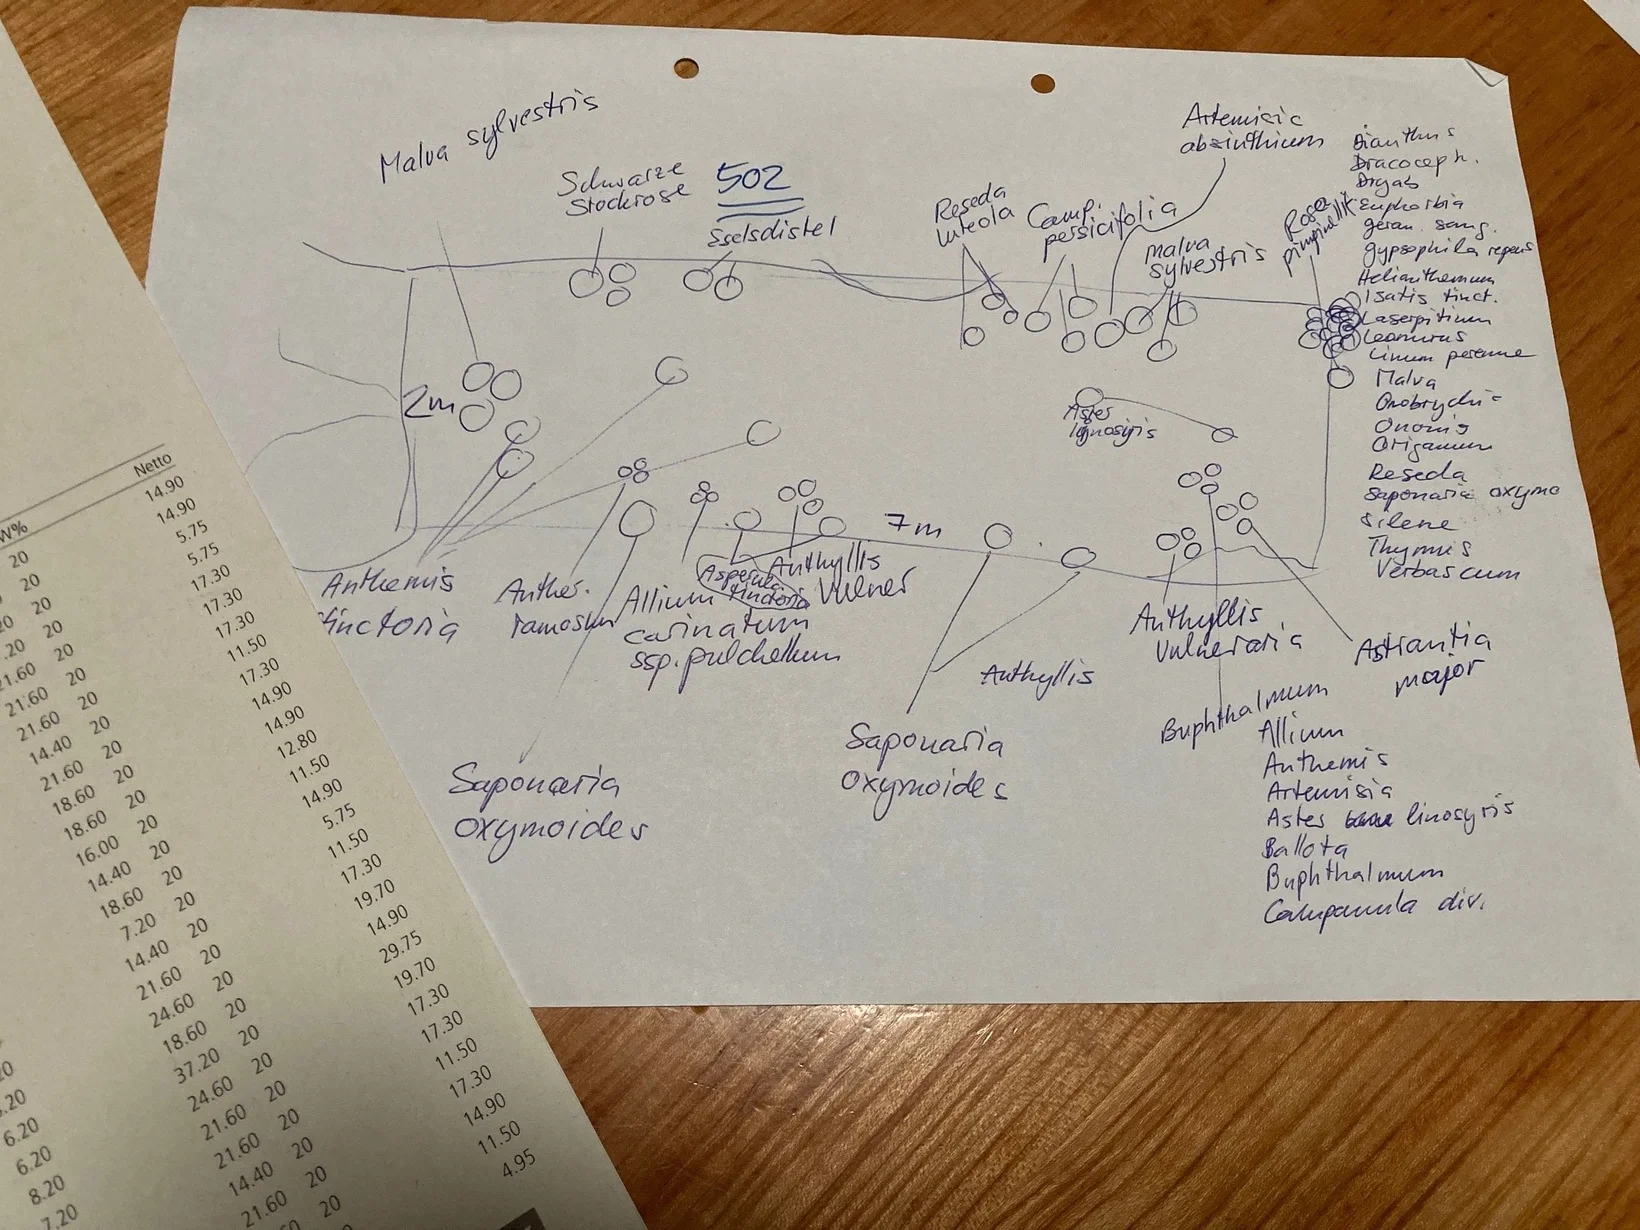 Malva sylvestris
Schwarze
Stockrose
502
Eselsdistel
Reseda
luteola
Camp.
persicifolia
Artemisia
absinthium
malva
sylvestris
Rosa
pimpinellif
Dianthus
Dracoceph.
Dryab
Euphorbia
geran. sang.
gypsophila repens
Helianthemum
Isatis tinct.
Laserpitium
Leonurus
Linum perenne
Malva
Onobrychis
Ononis
Origanum
Reseda
Saponaria oxymo
Silene
Thymus
Verbascum
2m
Aster
7m
Anthemis
tinctoria
Anther.
ramosum
Allium
carinatum
ssp. pulchellum
Asperula
tinctoria
Anthyllis
Vulner
Saponaria
oxymoides
Anthyllis
Saponaria
oxymoides
Anthyllis
Vulneraria
Astrantia
major
Buphthalmum
Allium
Anthemis
Artemisia
Aster linosyris
Ballota
Buphthalmum
Campanula div.
W%
Netto
20 14.90
20 14.90
20 5.75
20 5.75
20 17.30
21.60 20 17.30
21.60 20 17.30
21.60 20 11.50
14.40 20 17.30
21.60 20 14.90
18.60 20 14.90
18.60 20 12.80
16.00 20 11.50
14.40 20 14.90
18.60 20 5.75
7.20 20 11.50
14.40 20 17.30
21.60 20 19.70
24.60 20 14.90
18.60 20 29.75
37.20 20 19.70
24.60 20 17.30
21.60 20 17.30
21.60 20 11.50
14.40 20 17.30
21.60 20 14.90
20 11.50
4.95
6.20
6.20
8.20
7.20